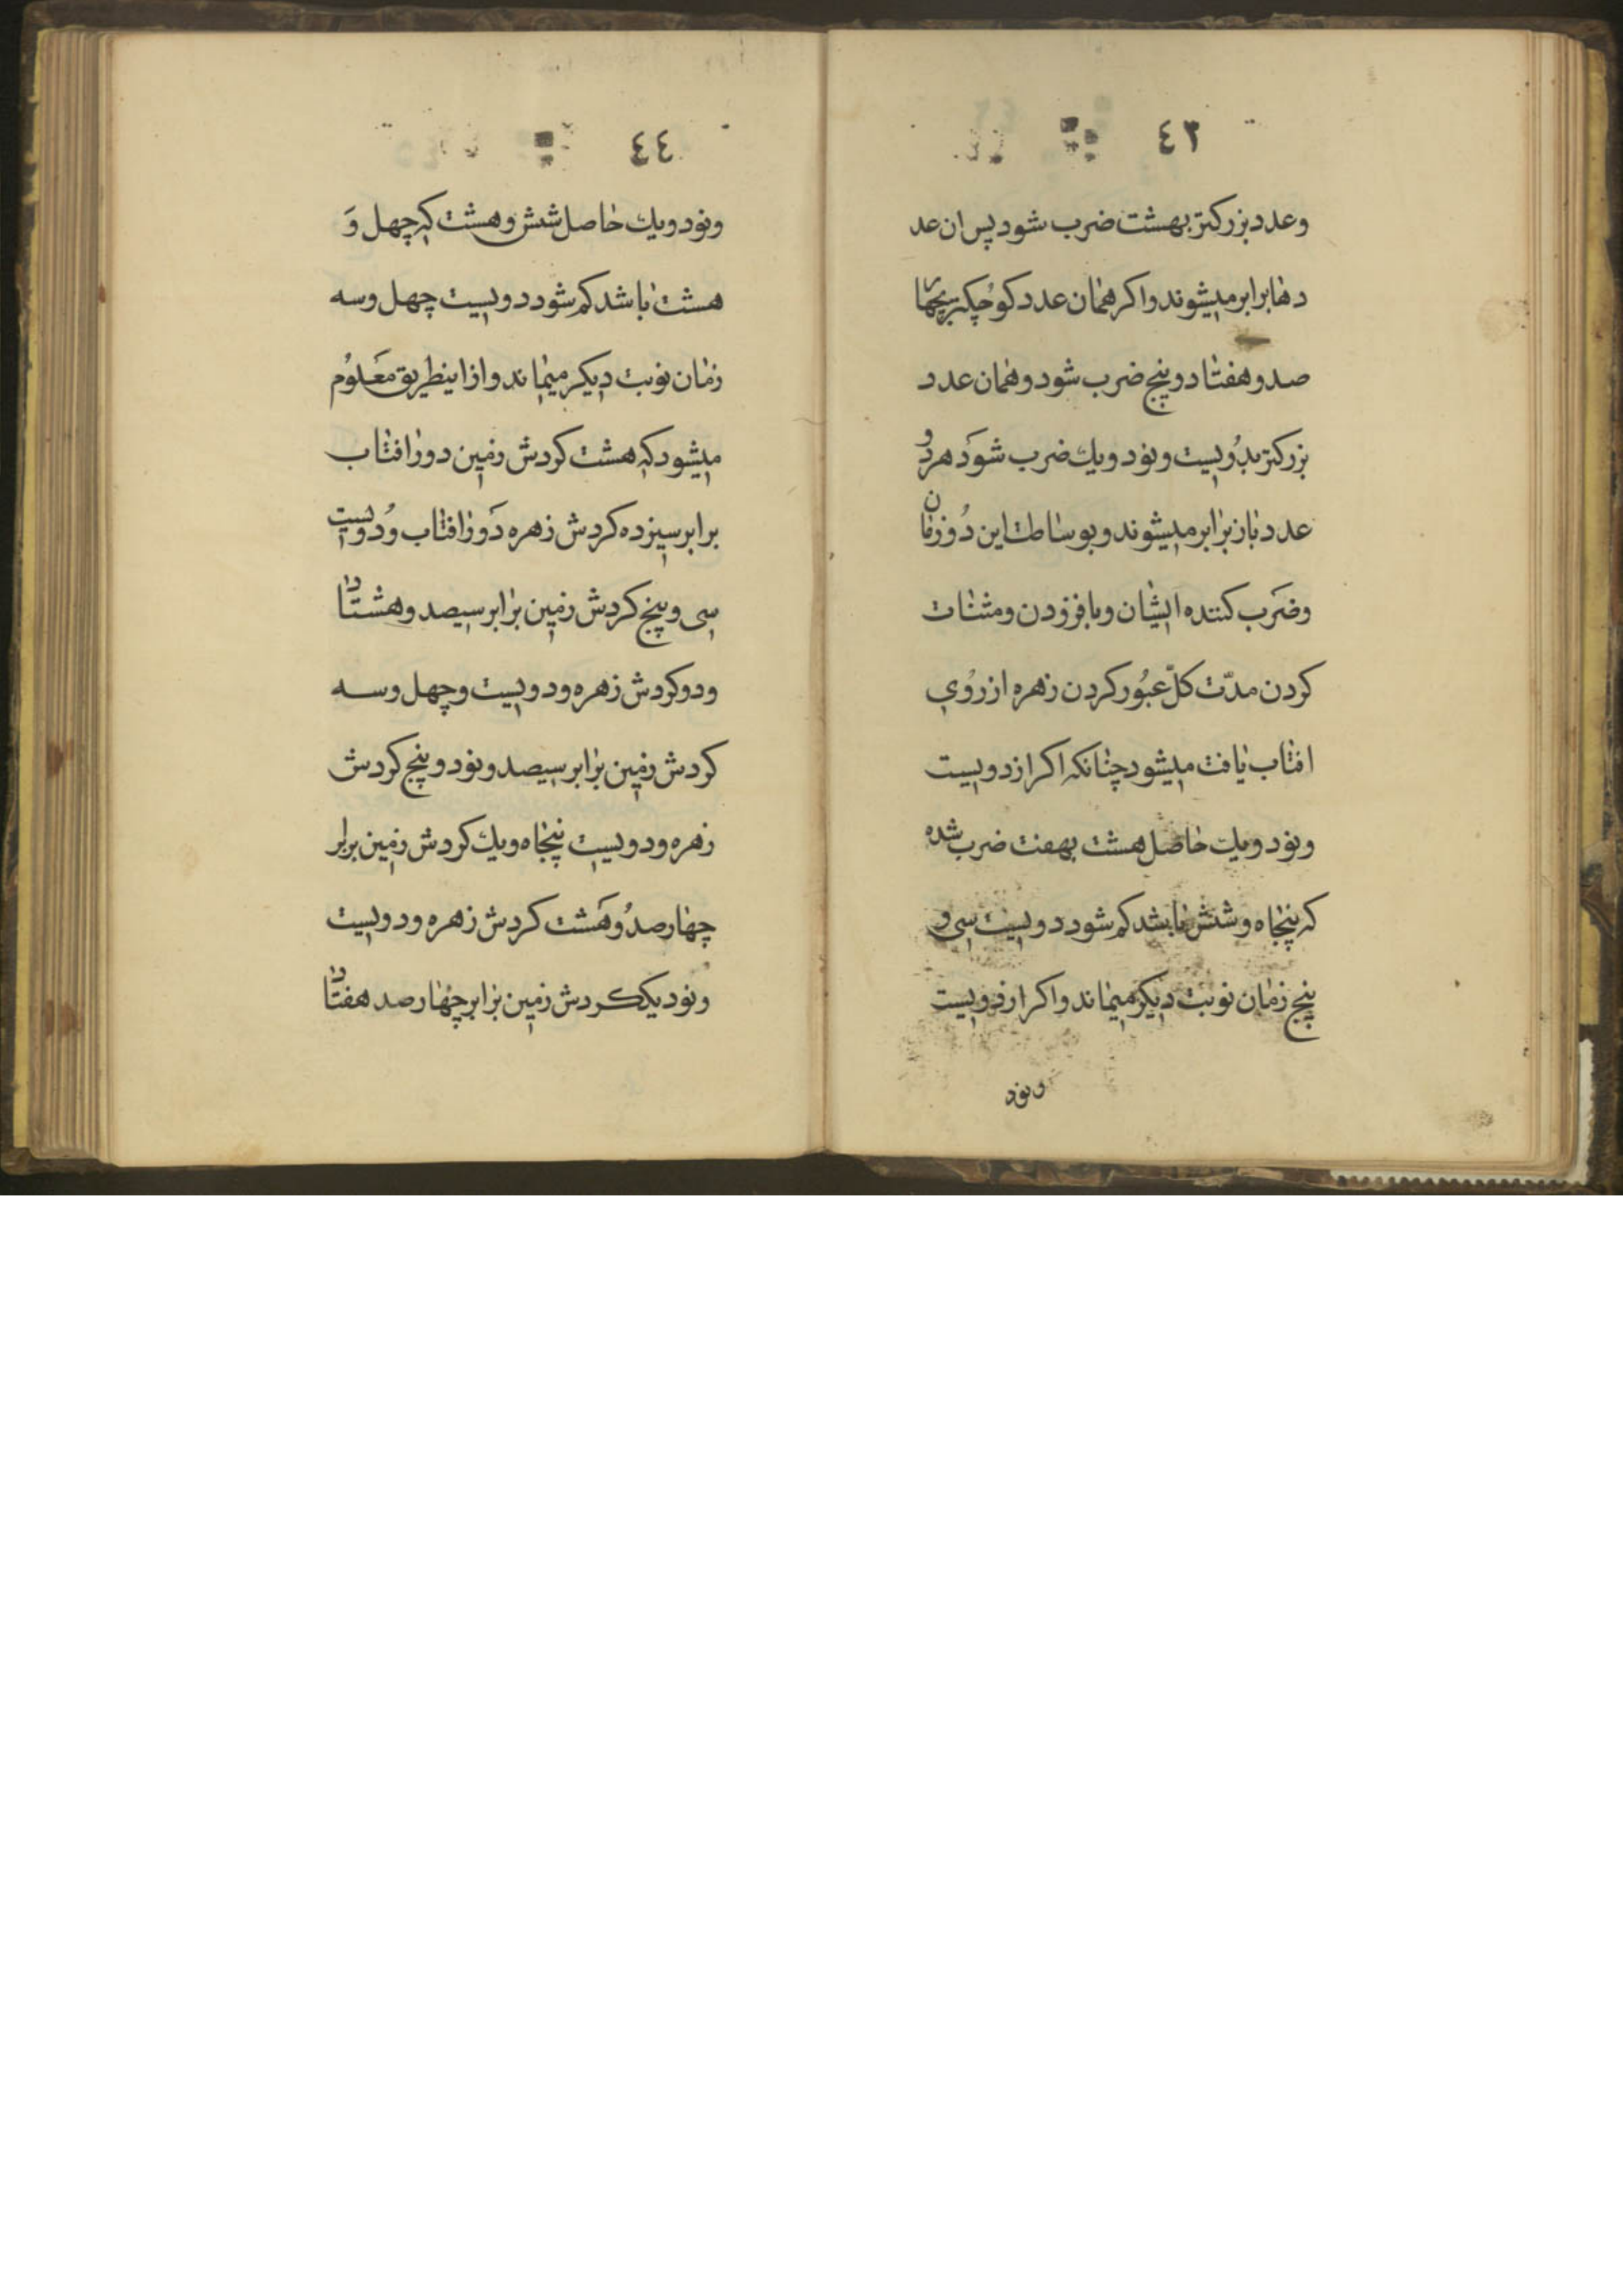 ٤٣
وعدد بزرکتر بهشت ضرب شود پس ان عد
دها برابر میشوند و اکر همان عدد کوچکتر بچهار
صد و هفتاد و پنج ضرب شود و همان عدد
بزرکتر بدویست و نود و یك ضرب شود هر دو
عدد باز برابر میشوند و بوساطت این دو زمان
وضرب کننده ایشان و با فزودن و مثنات
کردن مدّت کلّ عبور کردن زهره از روی
افتاب یافت میشود چنانکه اکر از دویست
و نود و یك حاصل هشت بهفت ضرب شده
که پنجاه و شش بابشد کم شود دویست سی و
پنج زمان نوبت دیکر میماند و اکر از دویست
و نود
٤٤
و نود و یك حاصل شش و هشت که چهل وَ
هشت باشد کم شود دویست چهل و سه
زمان نوبت دیکر میماند و از اینطریق معلوم
میشود که هشت کردش زمین دور افتاب
برابر سیزده کردش زهره دور افتاب و دویست
سی و پنج کردش زمین برابر سیصد و هشتاد
و دو کردش زهره و دویست و چهل و سه
کردش زمین برابر سیصد و نود و پنج کردش
زهره و دویست پنجاه و یك کردش زمین برابر
چهار صد و هشت کردش زهره و دویست
و نود یک کردش زمین برابر چهار صد هفتاد